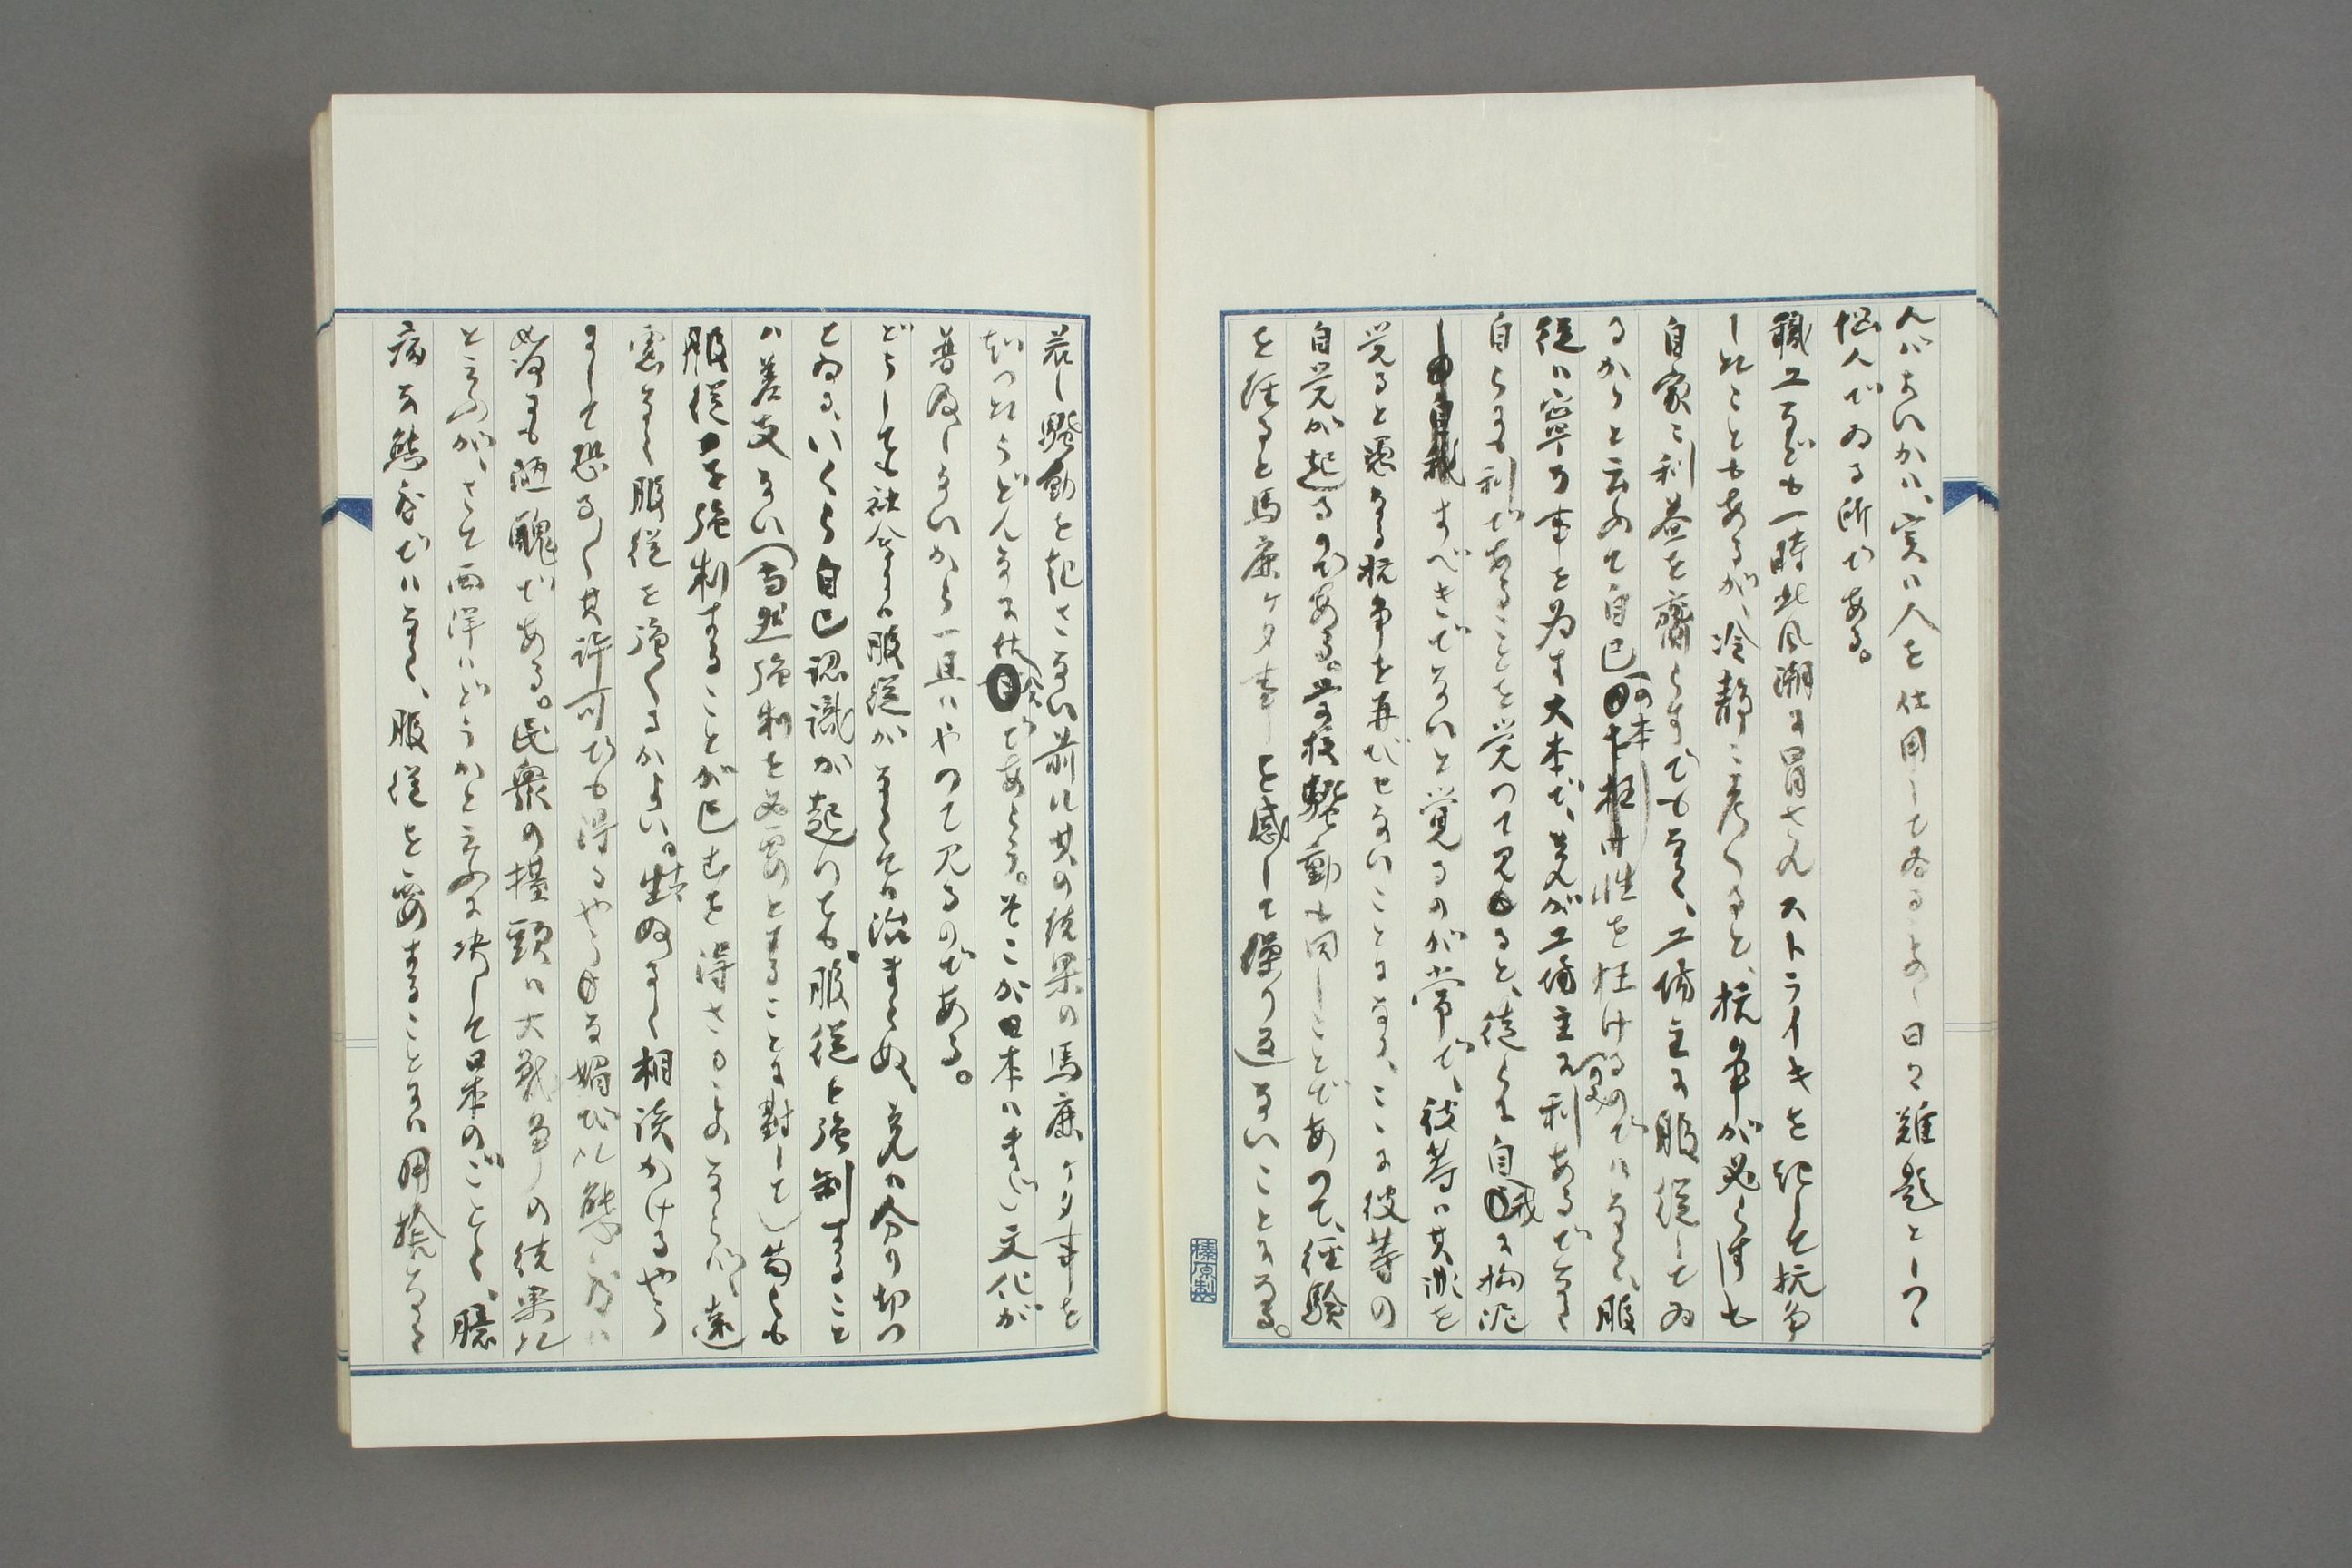 んばよいかは、実に人を仕用して居るもの、日々難題としつ
悩んでゐる所である。
職工なども一時此風潮に冒されストライキを起して抗争
したこともあるが、冷静に考へると、抗争が必らずも
自家に利益を齎らすでもなく、工場主に服従してゐ
るからと云つて自己の本性を枉げるのではなく、服
従は寧ろ事を為す大本だ、夫が工場主に利あるでなく
自らにも利であることを覚つて見ると、徒らに自我に拘泥
すべきでないと覚るのが常だ、彼等は其非を
覚ると悪なる抗争を再びせないことになる、ここに彼等の
自覚が起るのである。学校騒動も同じことであつて、経験
を経ると馬鹿ゲタ事を感じて繰り返さないことになる。
若し騒動を起さない前に其の結果の馬鹿ゲタ事を
知つたらどんなに
であらう。そこが日本はまだ文化が
普及しないから一旦はやつて見るのである。
どうしても社会は服従がなくては治まらぬ、夫は分り切つ
てゐる、いくら自己認識が起つても、服従を強制すること
は差支ない(当然強制を必要とすることに対して)苟くも
服従を強制することが已むを得さるものならば、遠
慮なく服従を強くるがよい。煮え切らぬ相談かけるやう
にして恐る〱其許可でも得るやうな媚びた態度は
如何にも陋醜である。民衆の擡頭は大戦争の結果だ
と云ふが、さて西洋はどうかと云ふに決して日本のごとく、臆
病な態度ではなく、服従を要することには用捨なく
榛原製